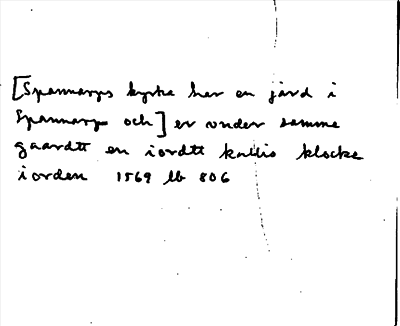 [Spannarps kyrka har en jård i
Spannarp och] er vnder samme
gaardtt en iordtt kallis klocke
iorden 1569 lb 806